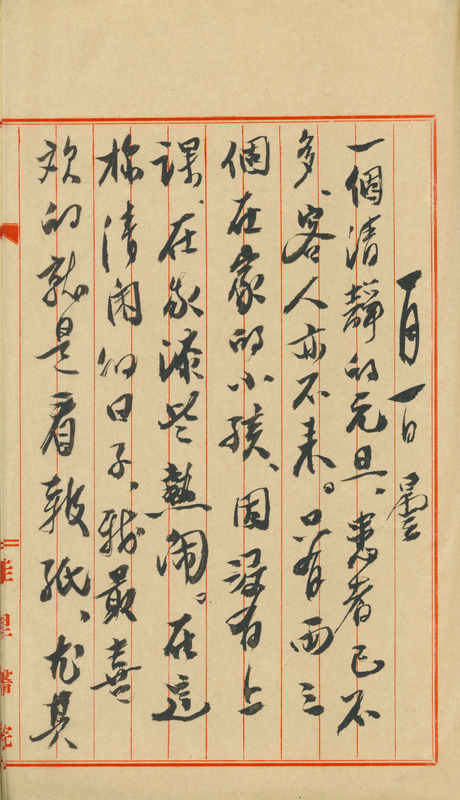 一月一日 曇
一個清靜的元旦、患者已不
多、客人亦不來。只有兩三
個在家的小孩、因沒有上
課、在家添些熱鬧。在這
極清閑的日子、我最喜
歡的就是看報紙、尤其
佳里醫院